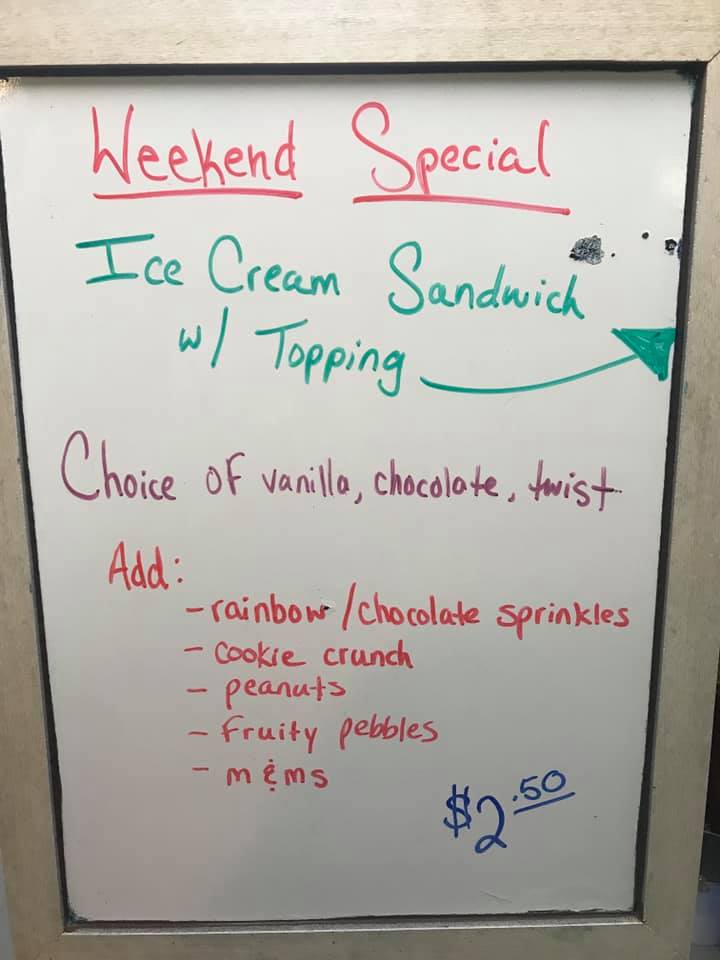 Weekend Special
Ice Cream Sandwich
w/ Topping
Choice of vanilla, chocolate, twist
Add:
- rainbow/chocolate sprinkles
- cookie crunch
- peanuts
- fruity pebbles
- m & ms
$2.50